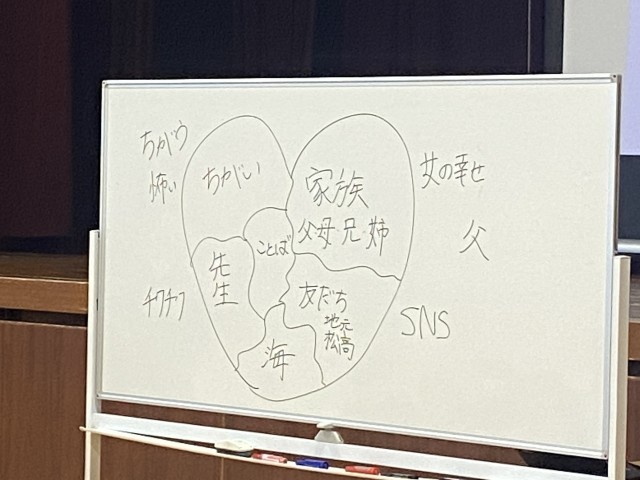 ちがう
怖い
ちがい
家族
父・母・兄・姉
女の幸せ
父
ことば
先生
チクチク
友だち
地元
松高
SNS
海